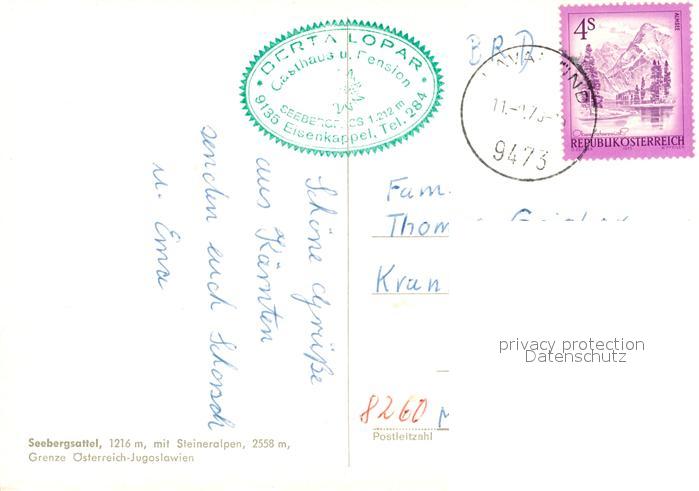 BERTA LOPAR
Gasthaus u. Pension
1.212 m
9135 Eisenkappel, Tel. 284
BRD
4s
ALMSEE
REPUBLIK ÖSTERREICH
9473
Schöne Grüße
aus Kärnten
senden euch Schorsch
u. Erna
Fam.
Thom
Kran
8260 M
Postleitzahl
privacy protection
Datenschutz
Seebergsattel, 1216 m, mit Steineralpen, 2558 m,
Grenze Österreich-Jugoslawien